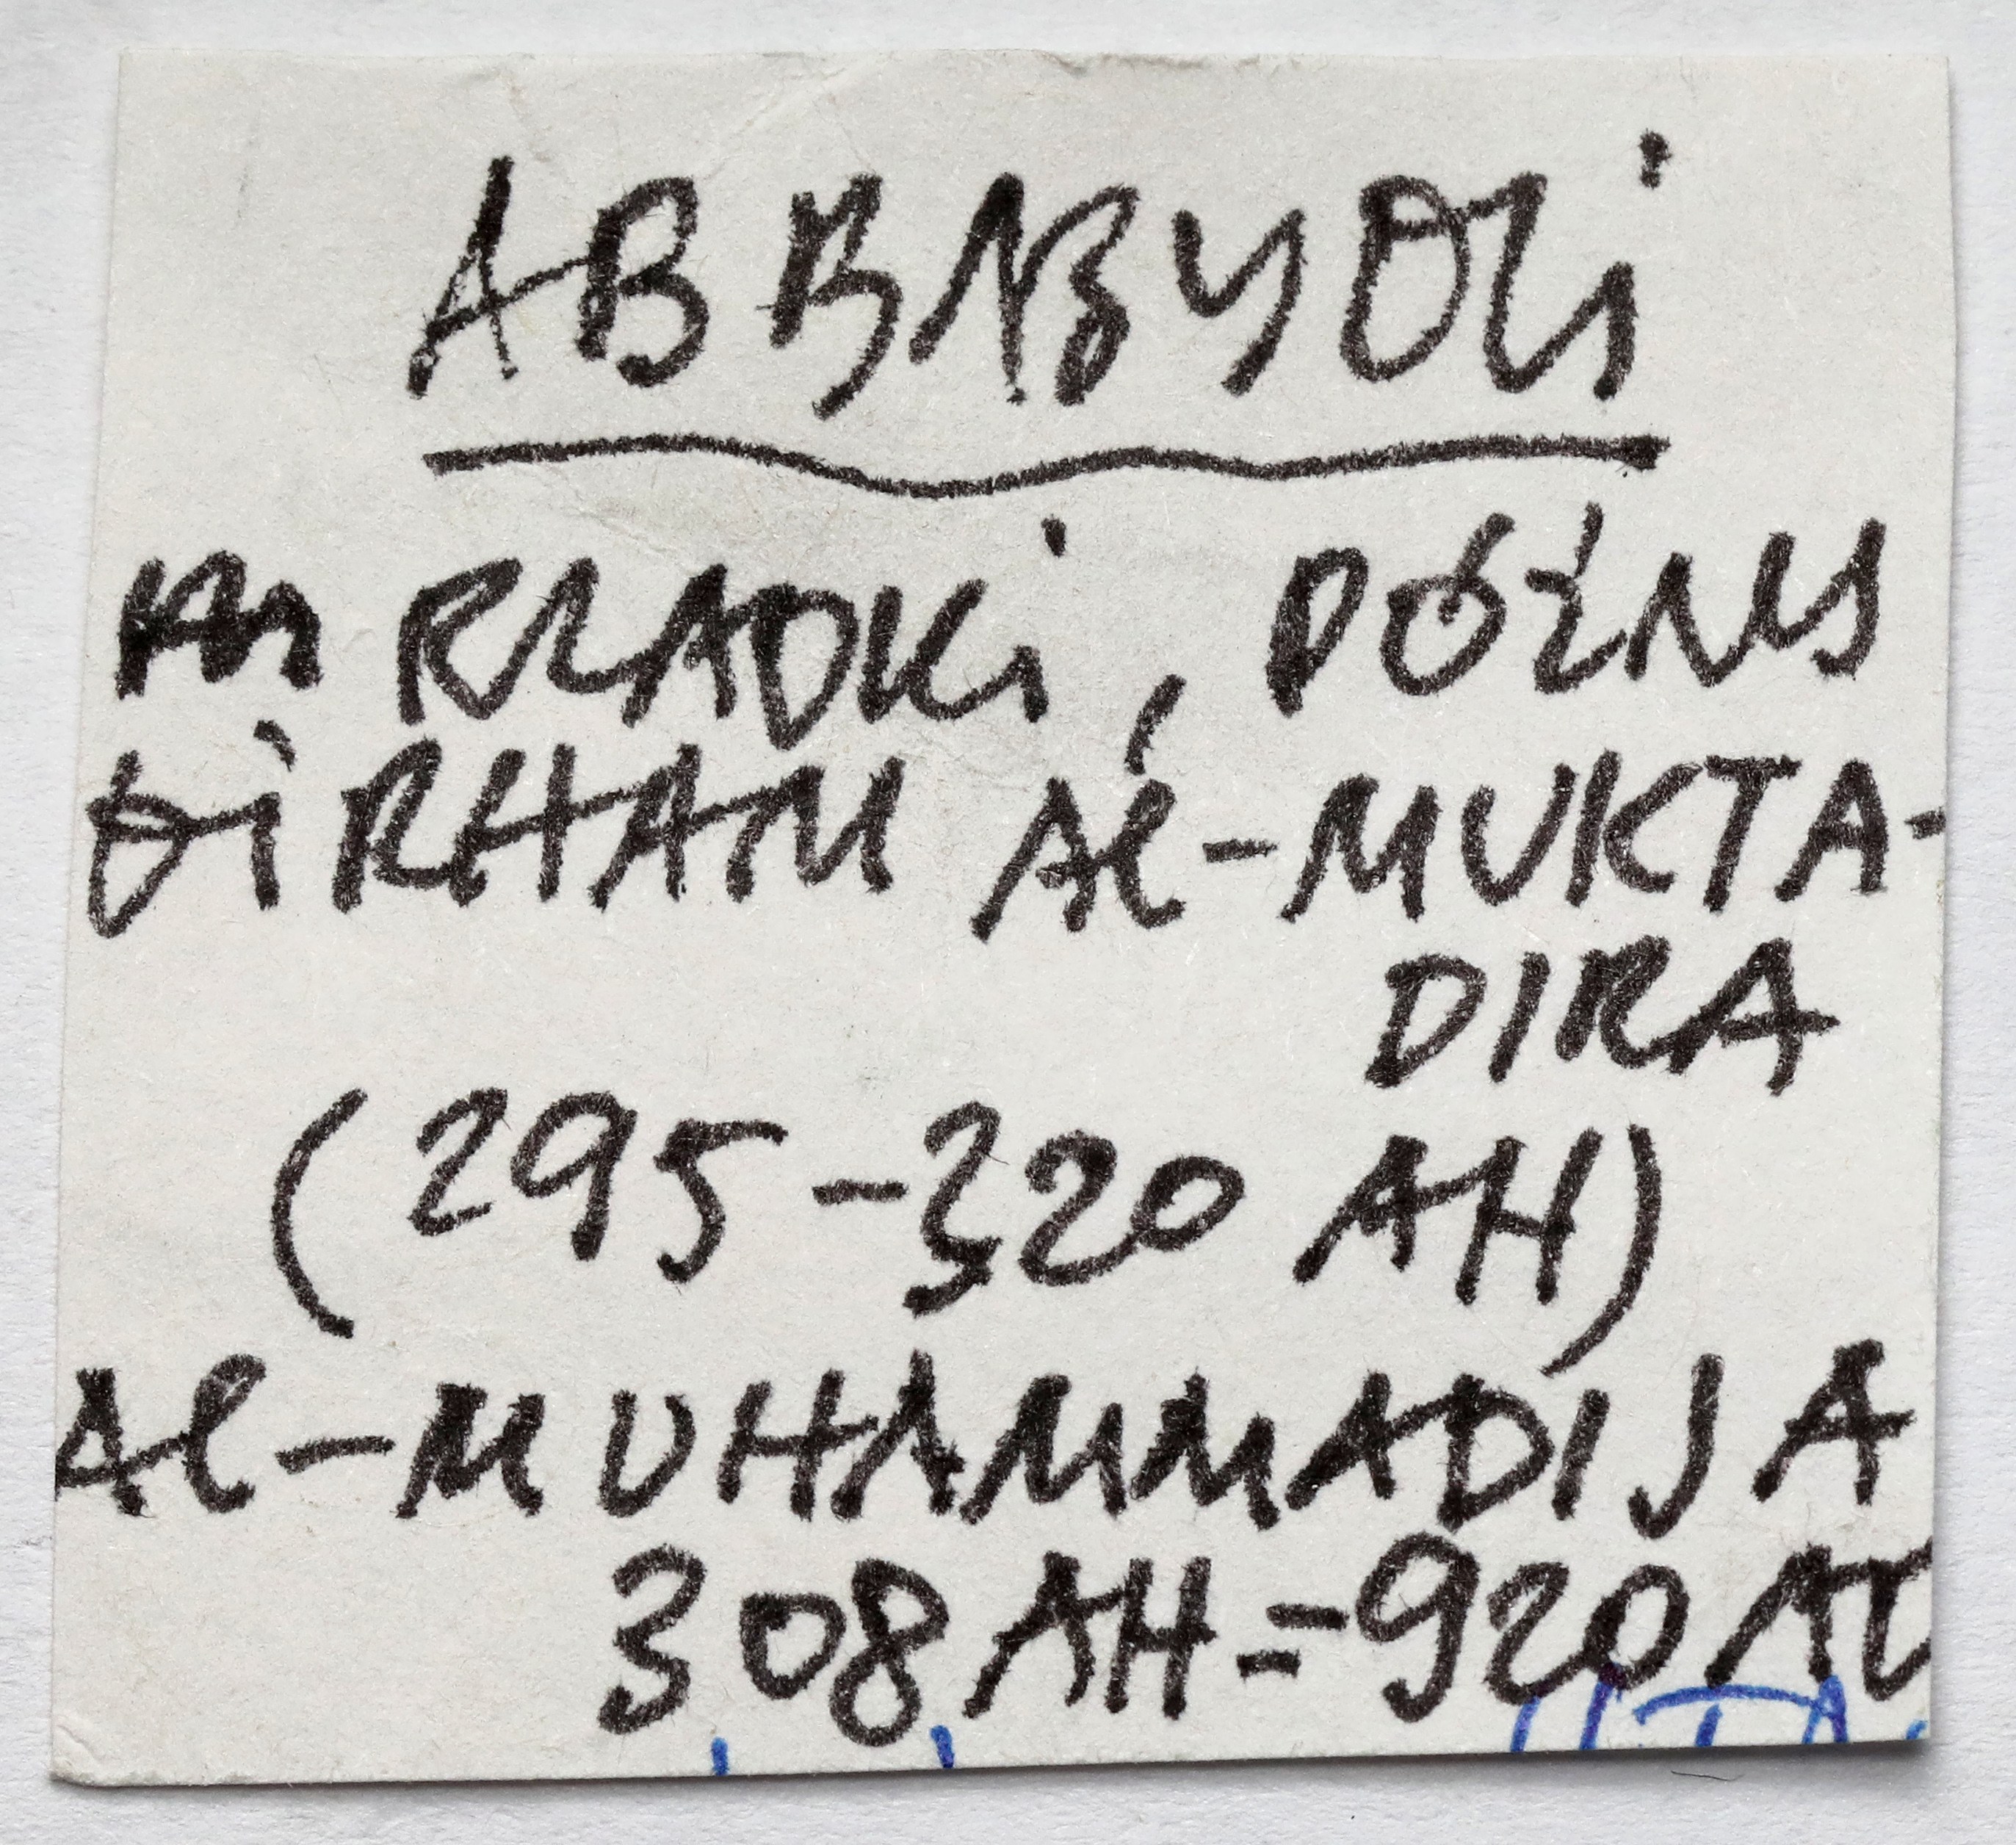 ABBASYDZI
RZADKI, PÓŹNY
DIRHAM Al-MUKTA-
DIRA
(295-320 AH)
Al-MUHAMMADIJA
308 AH=920 AD